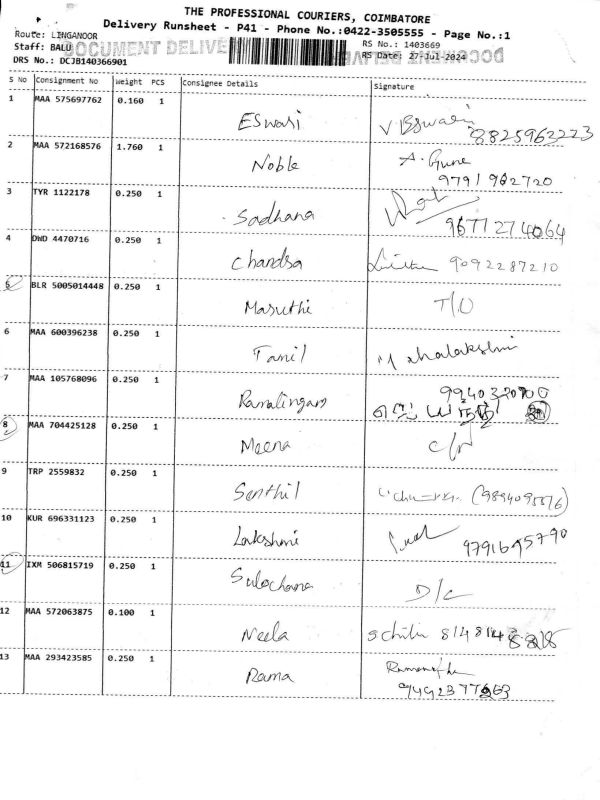 THE PROFESSIONAL COURIERS, COIMBATORE
Delivery Runsheet - P41 - Phone No.:0422-3505555 - Page No.:1
Route: LINGANOOR
RS No.: 1403669
Staff: BALU
DOCUMENT DELIVE
RS Date: 27-Jul-2024
DRS No.: DCJB140366901
S No Consignment No Weight PCS Consignee Details Signature
1 MAA 575697762 0.160 1 Eswari V. Eswari
8825963223
2 MAA 572168576 1.760 1 Noble A. Gune
9791962720
3 TYR 1122178 0.250 1 Sadhana
9677274064
4 DWD 4470716 0.250 1 Chandra 9092287210
5 BLR 5005014448 0.250 1 Maruthi T/O
6 MAA 600396238 0.250 1 Tamil Mahalakshmi
7 MAA 105768096 0.250 1 Ramalingam
8 MAA 704425128 0.250 1 Meena
9 TRP 2559832 0.250 1 Senthil
10 KUR 696331123 0.250 1 Lakshmi
9791695790
11 IXM 506815719 0.250 1 Sulochana D/C
12 MAA 572063875 0.100 1 Neela
13 MAA 293423585 0.250 1 Rama